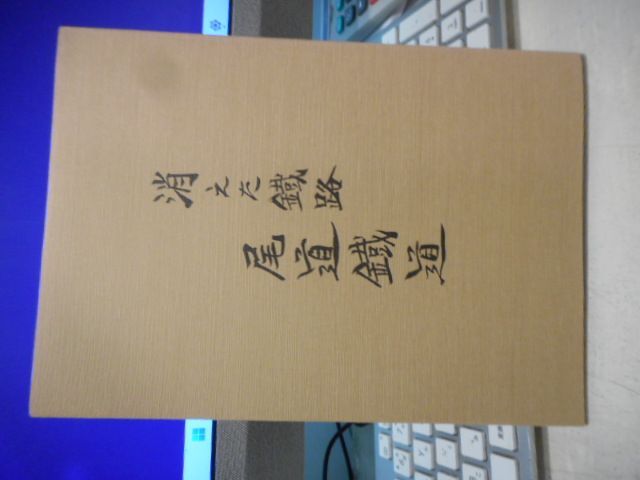 消えた鐵路
尾道鐵道